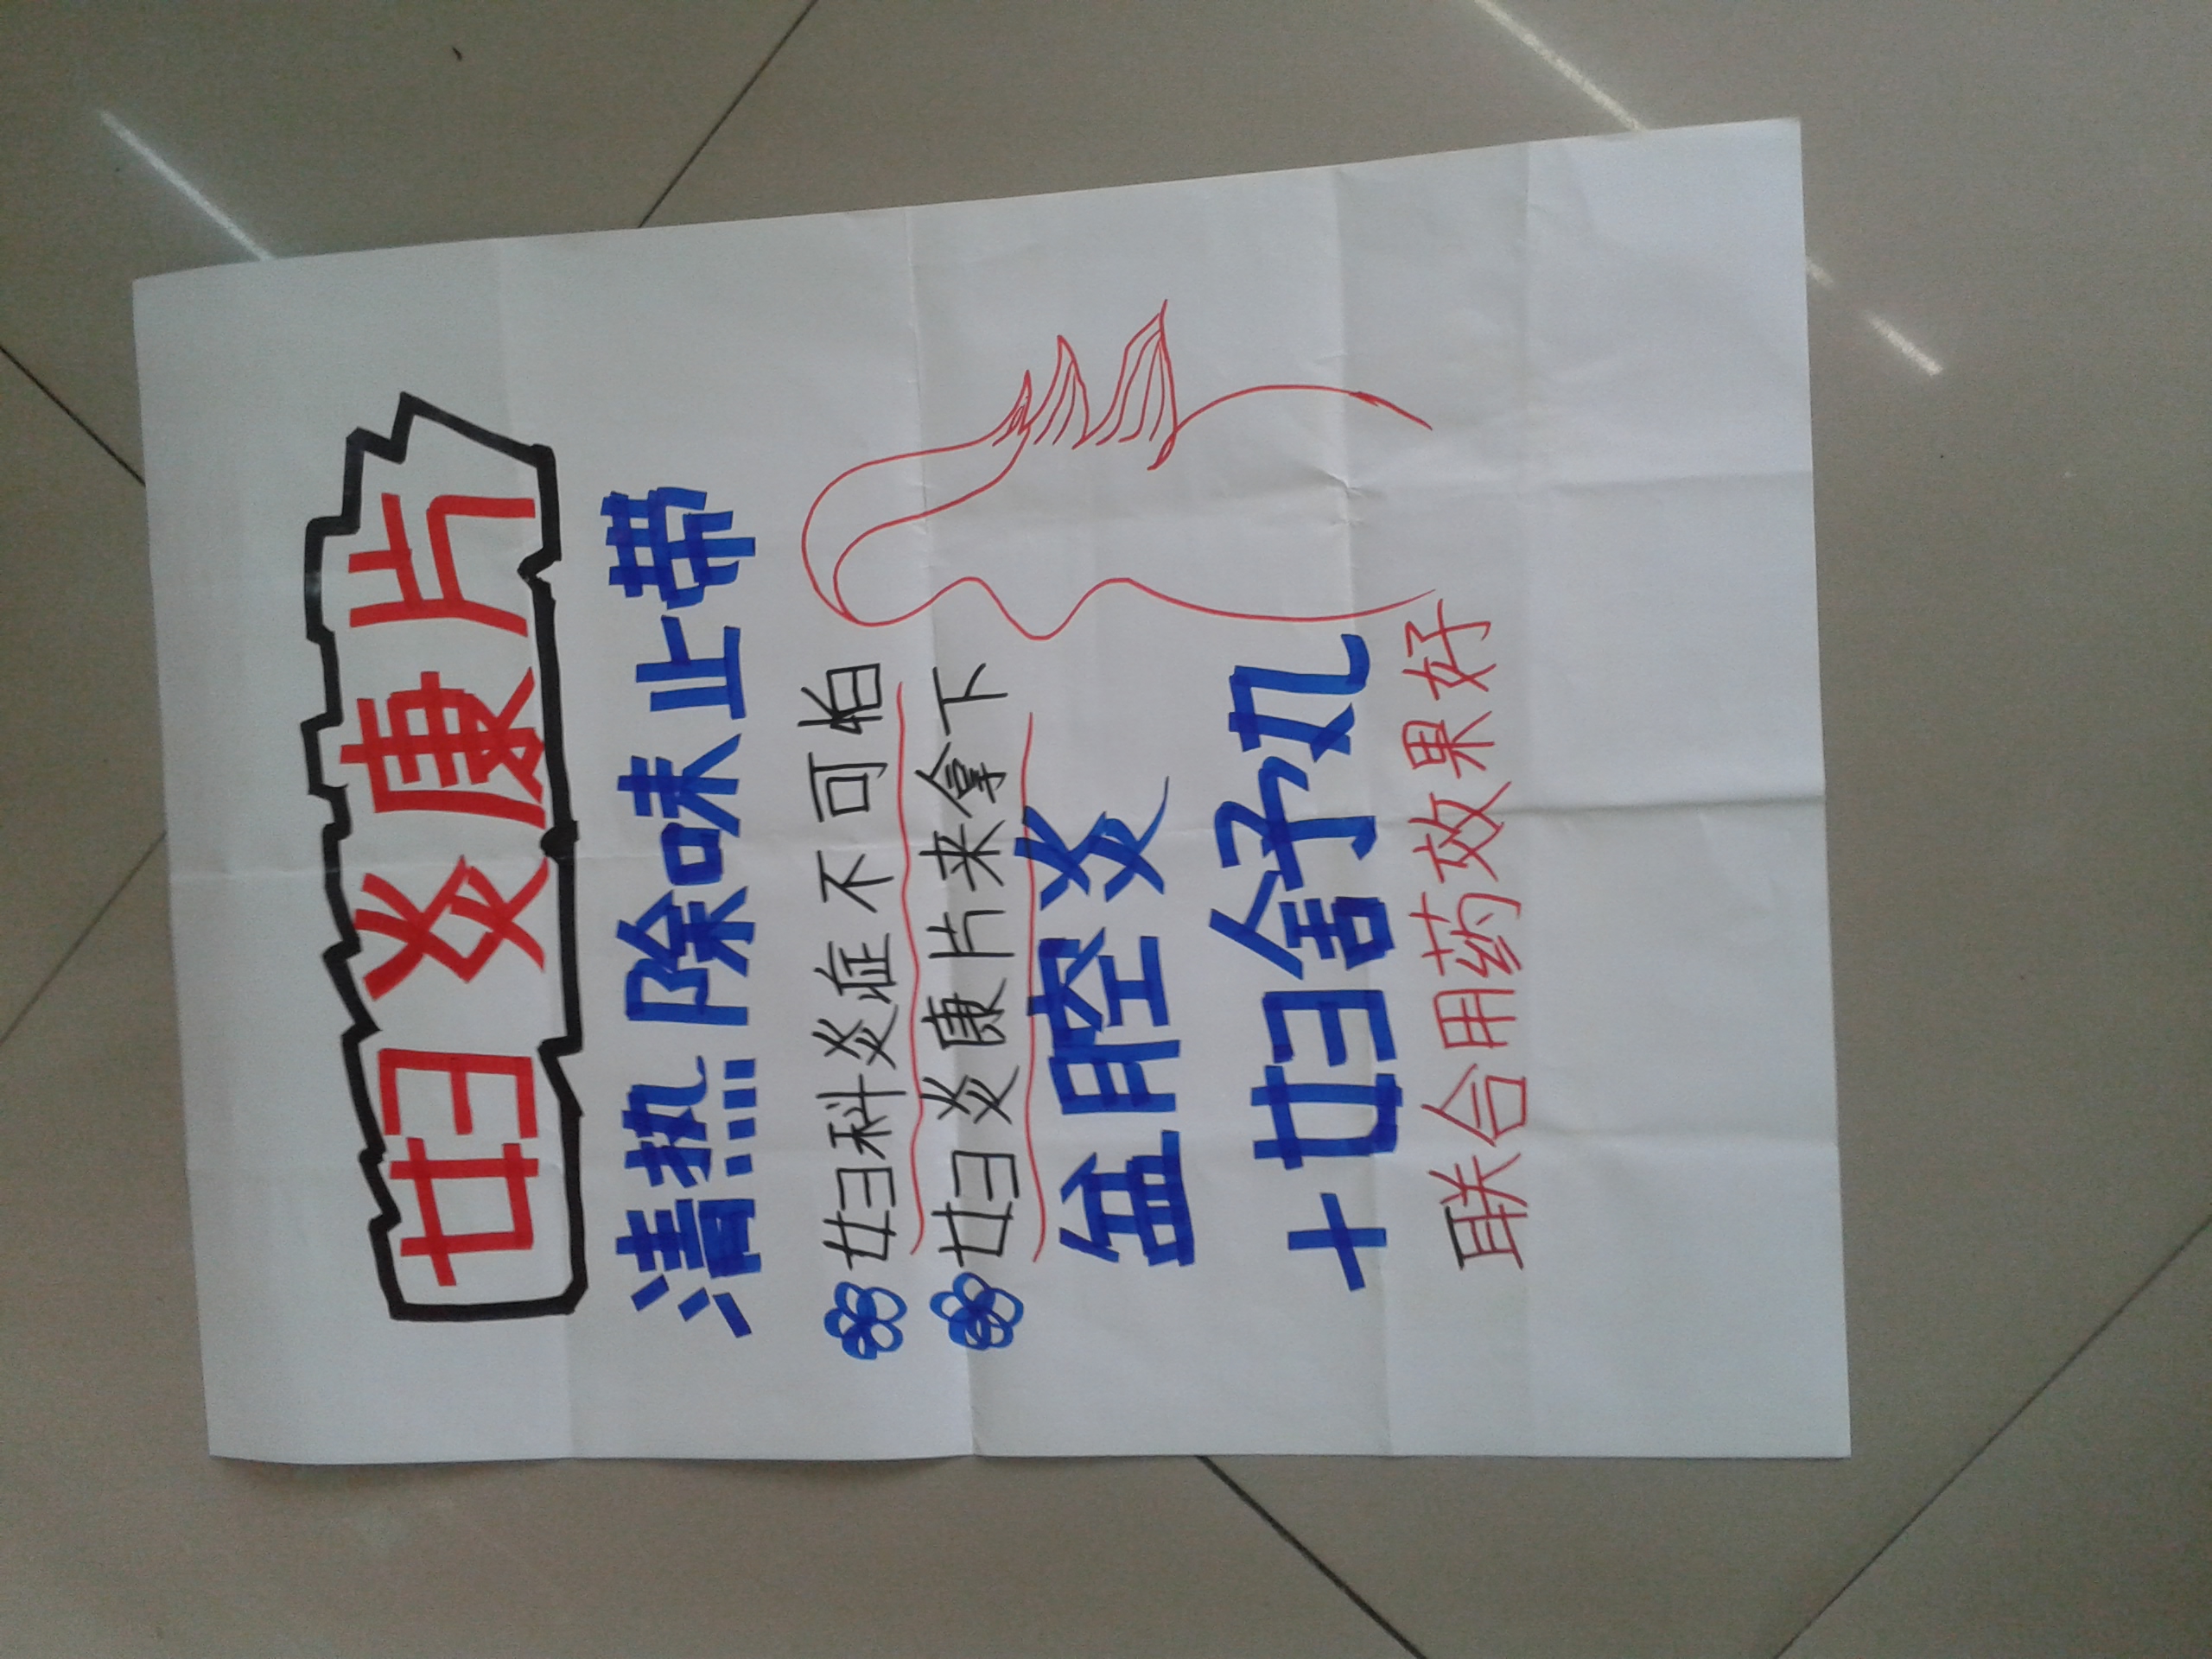 妇炎康片
清热除味止带
妇科炎症不可怕
妇炎康片来拿下
盆腔炎
+妇舒丸
联合用药效果好